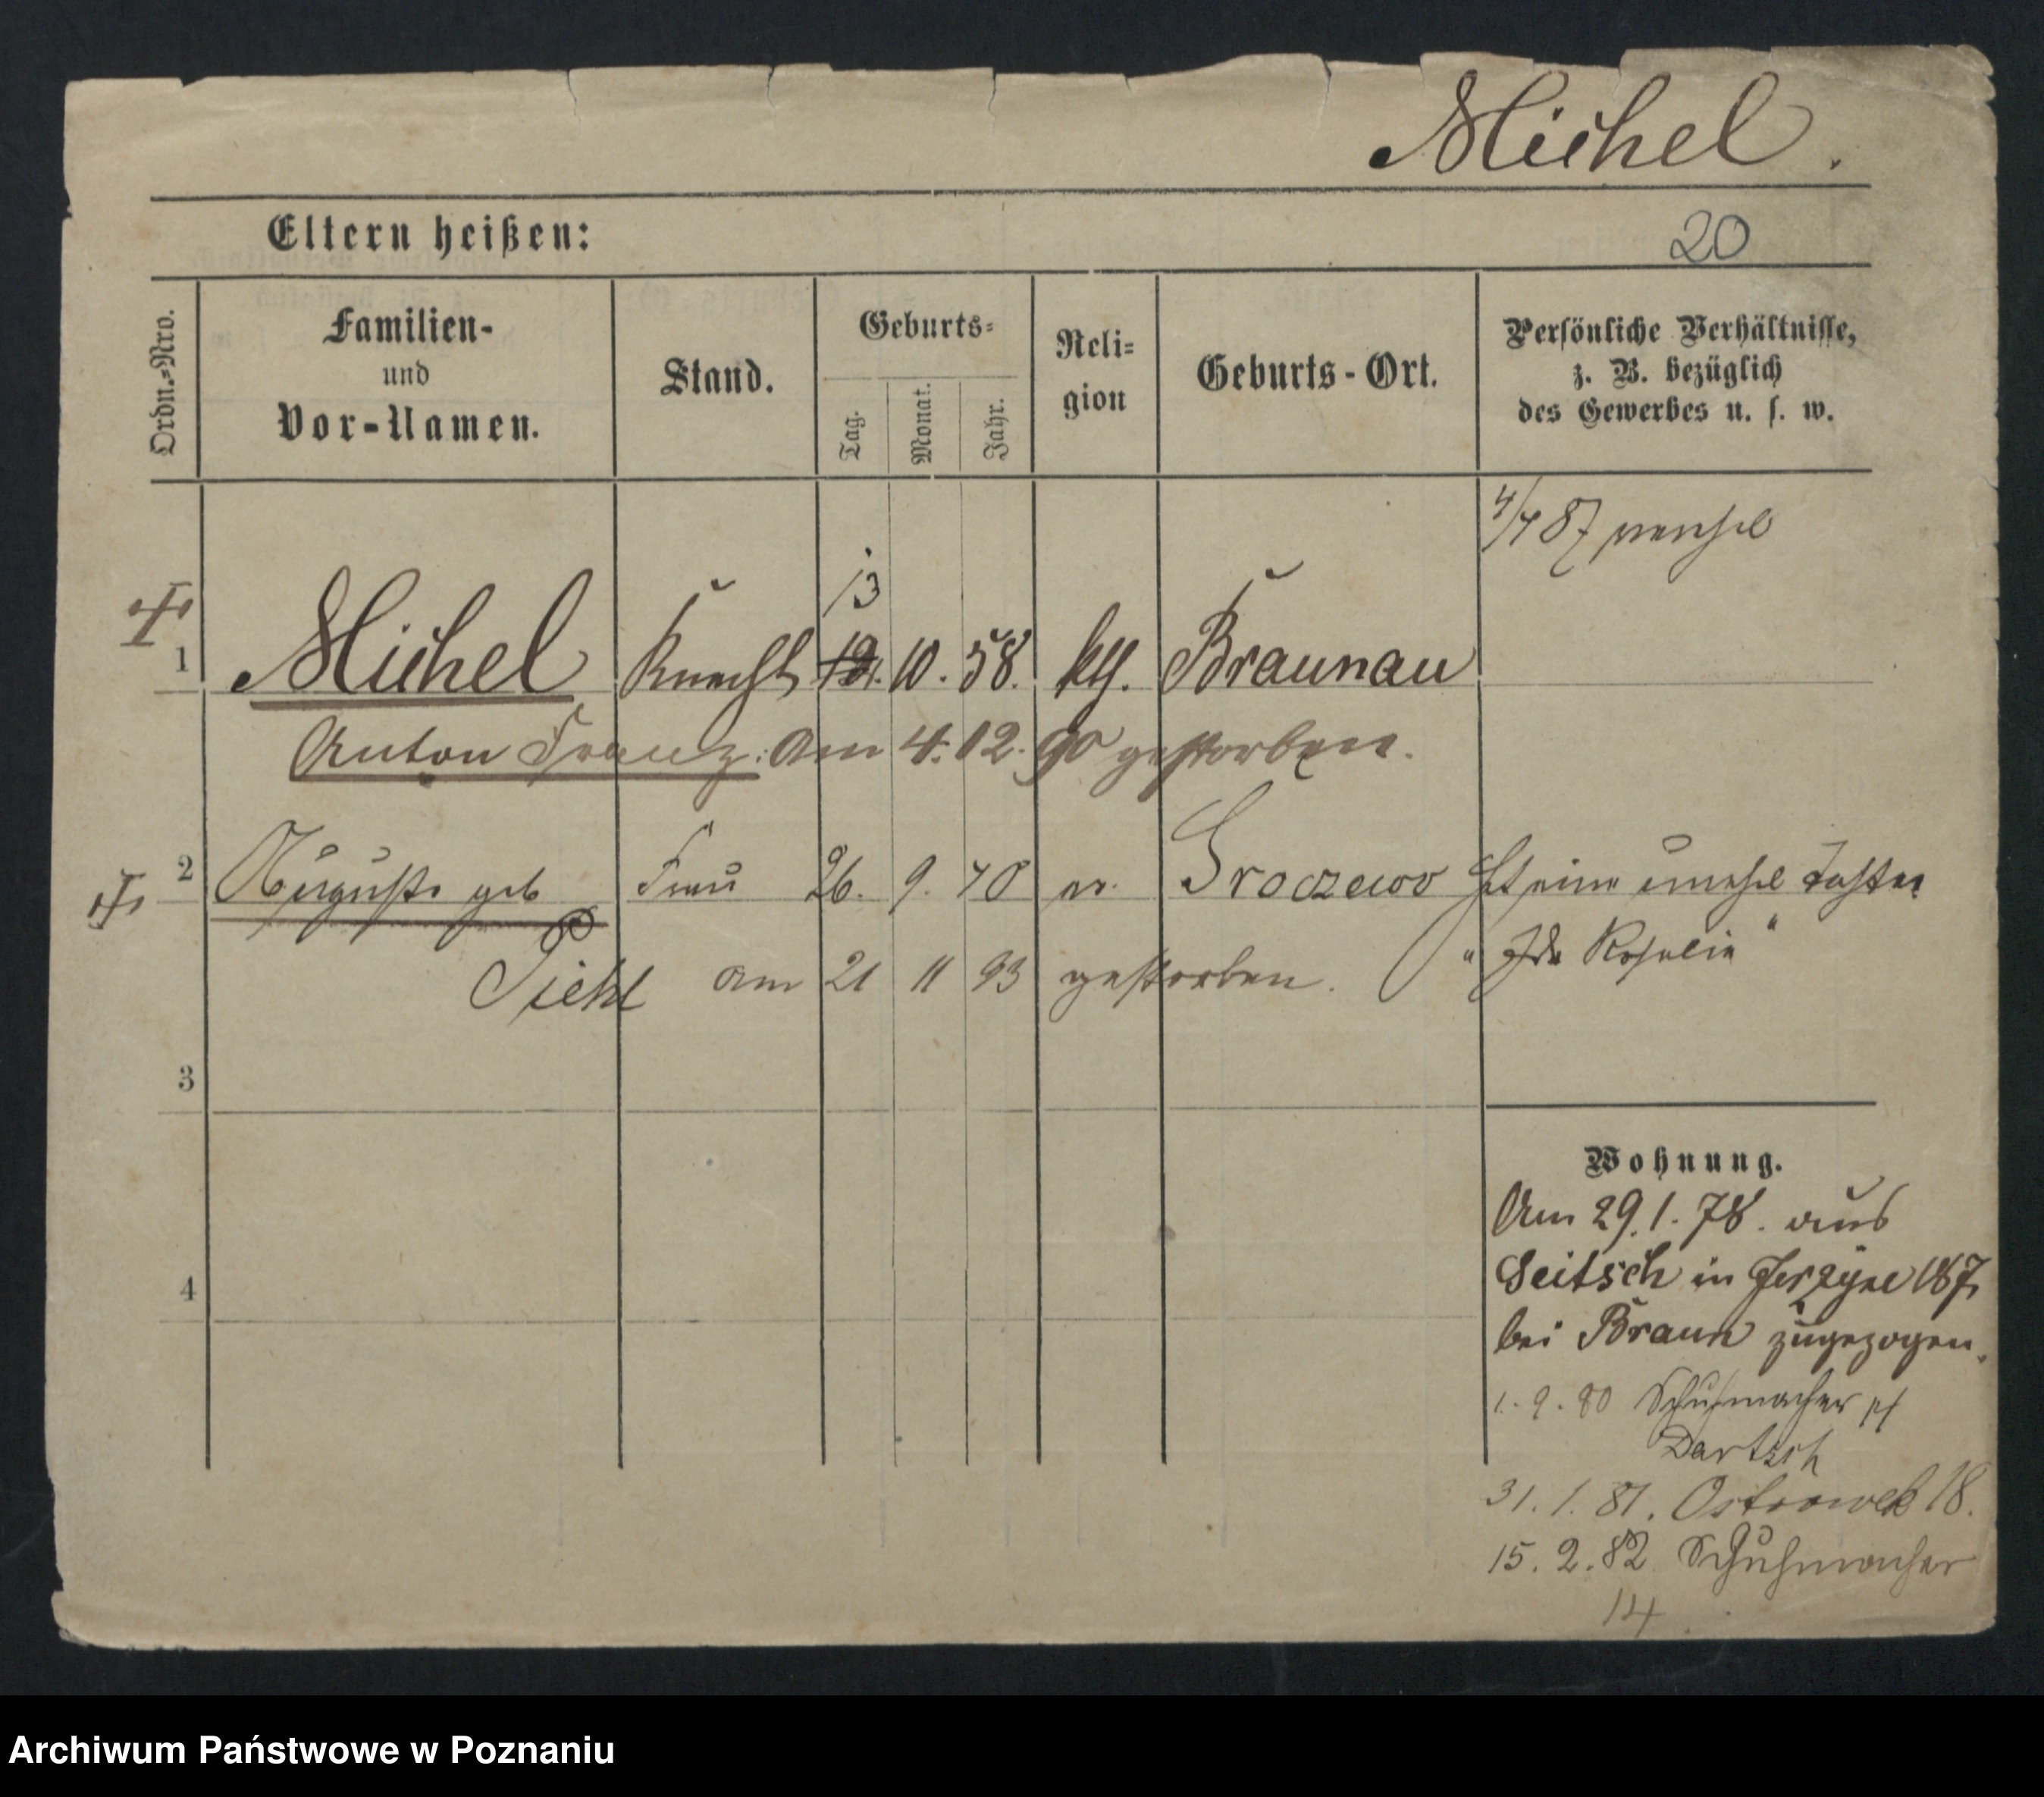 Michel.
Eltern heißen:
20
Ordn.-Nro.
Familien-
und
Vor-Namen.
Stand.
Geburts-
Tag.
Monat.
Jahr.
Reli-
gion
Geburts-Ort.
Persönliche Verhältnisse,
z. B. bezüglich
des Gewerbes u. s. w.
4/7 87 verehel
13
1 Michel Knecht 12. 10. 58. kth. Braunau
Anton Franz. Am 4. 12. 90 gestorben.
2 Auguste geb Frau 26. 9. 70 ev. Hat eine unehel Tochter
Piehl am 21 11 93 gestorben. "Ida Rosalie"
3
4
Wohnung.
Am 29.1.78. aus
Seitsch in Jerzyce 187
bei Braun zugezogen.
1. 9. 80 Schuhmacher
Dartsch
31. 1. 81. Ostrowek 18.
15. 2. 82 Schuhmacher
14
Archiwum Państwowe w Poznaniu